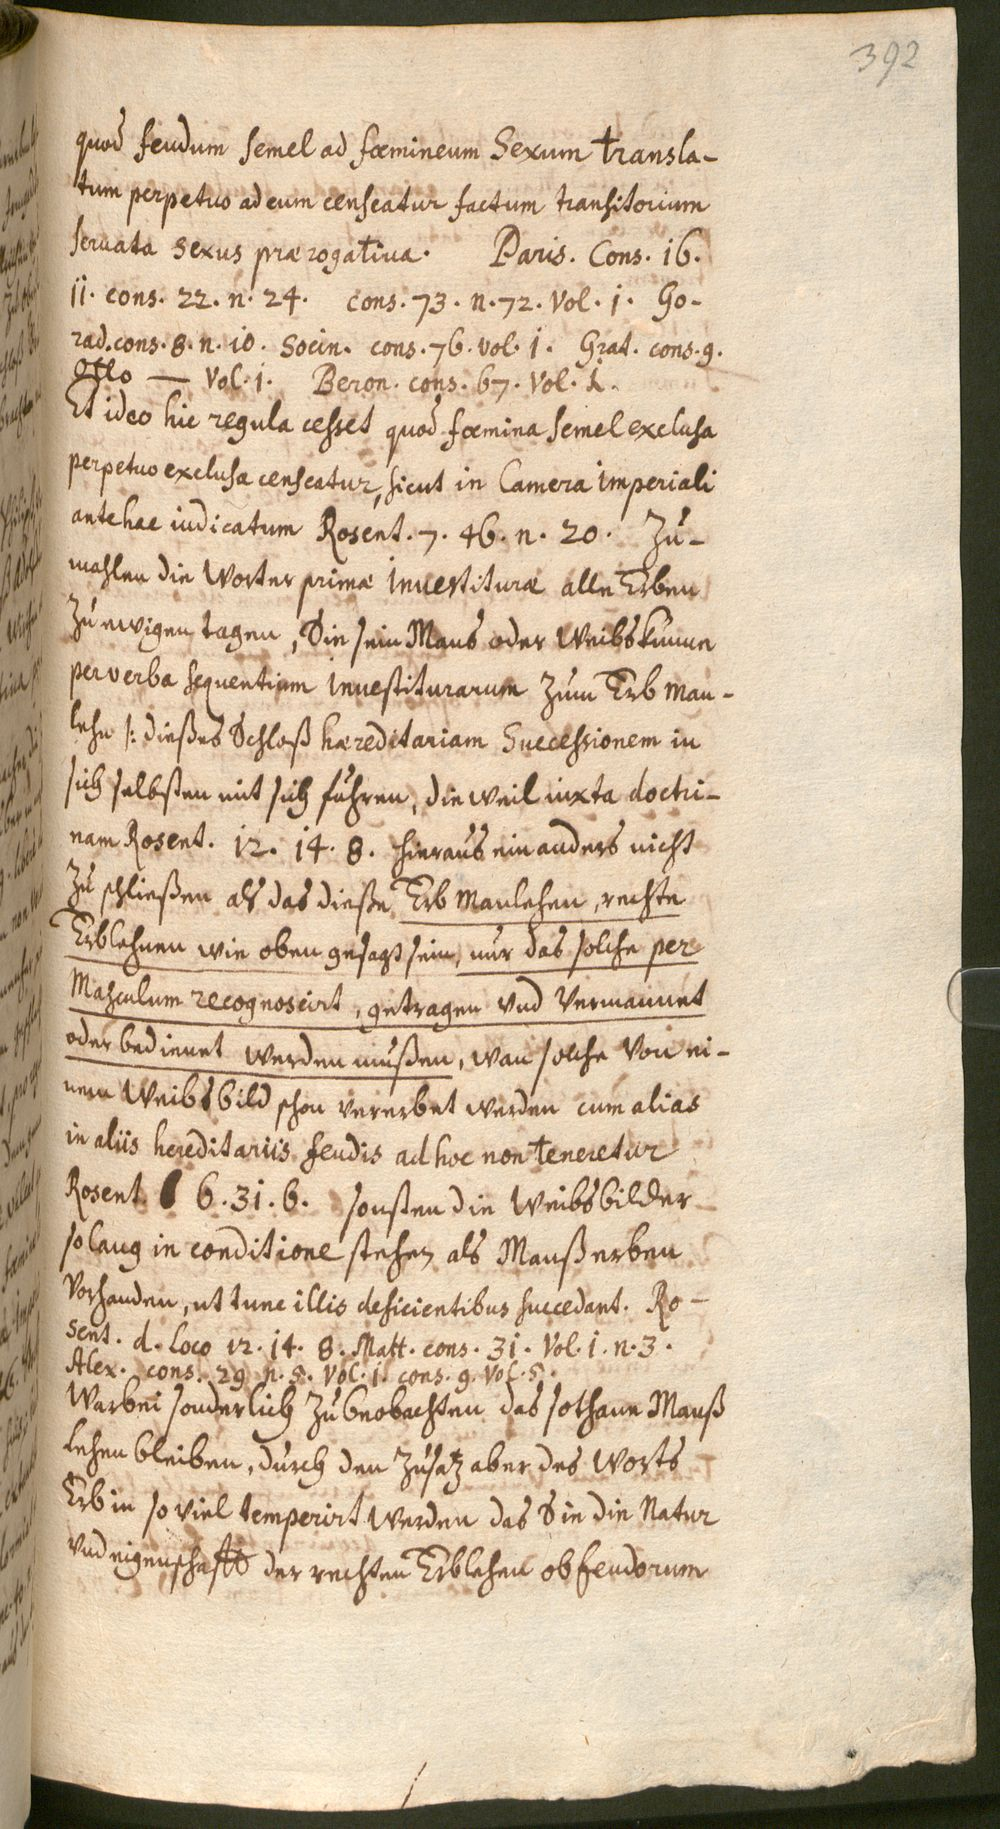 392
quod feudum semel ad fœmineum Sexum transla-
tum perpetuo ad eum censeatur factum transitorium
servata sexus prærogativa. Paris. Cons. 16.
ii. cons. 22. n. 24. cons. 73. n. 72. Vol. i. Go-
rad. cons. 8. n. i0. Socin. cons. 76. vol. i. Grat. cons. 9.
otto — Vol. i. Beron. cons. 67. Vol. 
Et ideo hic regula cesset quod fœmina semel exclusa
perpetuo exclusa censeatur, sicut in Camera imperiali
antehac iudicatum Rosent. 7. 46. n. 20. Zu-
mahlen die Worter primæ investituræ alle Erben
Zu ewigen tagen, Sie sein Mans oder Weibskunne
per verba sequentium investiturarum Zum Erb Man-
lehn /: dießes Schloß hæreditariam Successionem in
sich selbsten mit sich führen, die weil iuxta doctri-
nam Rosent. i2. i4. 8. hieraus ein anders nicht
Zu schließen als das dieße Erb Manlehen, rechte
Erblehnen wie oben gesagt sein, nur das solche per
Masculum recognoscirt, getragen vnd Vermannet
oder bedienet werden mußen, wan solche Von ei-
nem Weibsbild schon vererbet werden cum alias
in aliis hereditariis feudis ad hoc non teneretur
Rosent. 6. 3i. 6. sonsten die Weibsbilder
so lang in conditione stehen als Manß erben
Vorhanden, ut tunc illis deficientibus succedant. Ro-
sent. d. Loco i2. i4. 8. Matt. cons. 3i. Vol. i. n. 3.
Alex. cons. 29 n. 5. Vol. i. cons. 9. Vol. 5.
Warbei sonderlich Zu beobachten das sothane Manß
Lehen bleiben, durch den Zusatz aber des Worts
Erb in so viel temperirt werden das Sie die Natur
vnd eigenschafft der rechten Erblehen ob feudorum